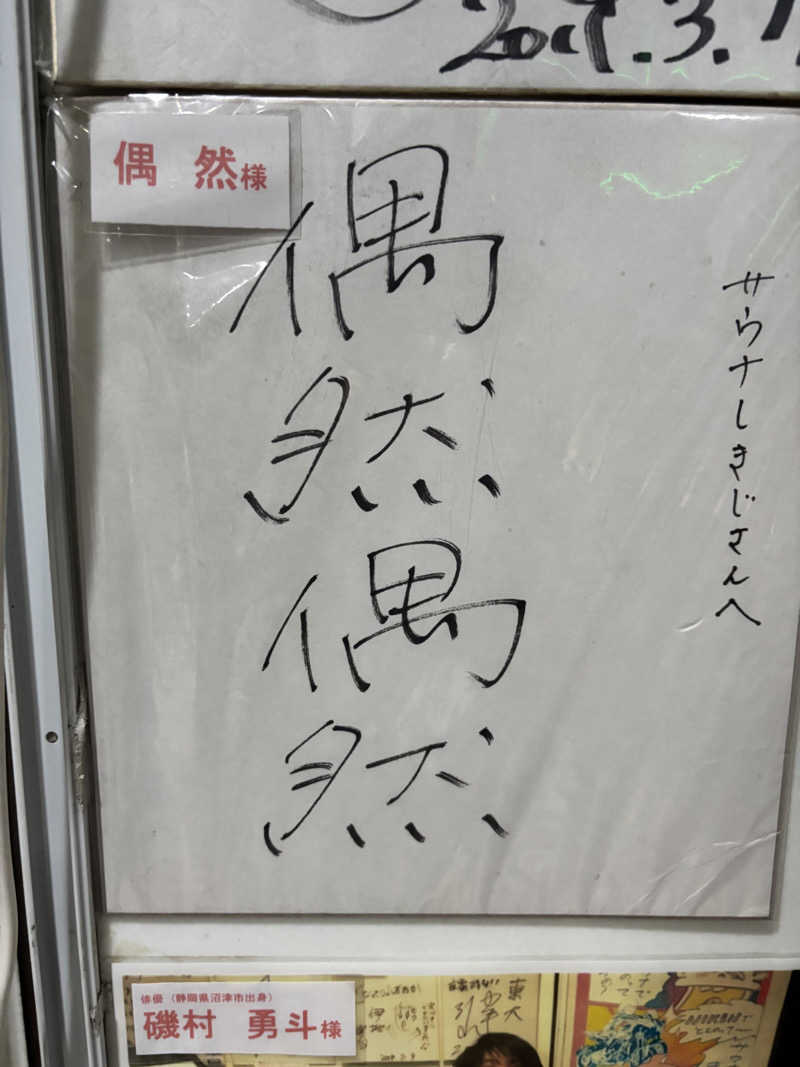 2019.3.1
偶 然様
偶然偶然
サウナしきじさんへ
俳優（静岡県沼津市出身）
磯村 勇斗様
東大